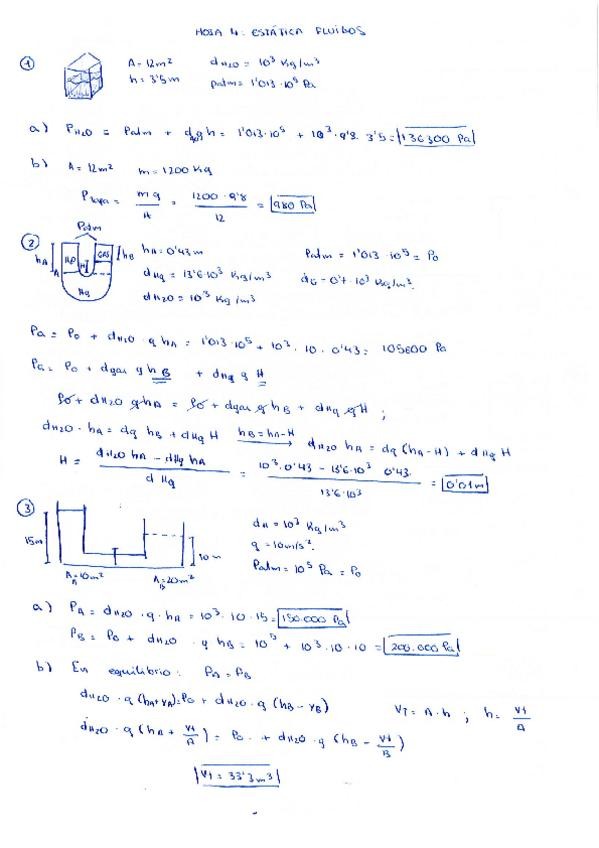 HOJA 4: ESTÁTICA FLUIDOS
① A = 12m² dH2O = 10³ Kg/m³
h = 3'5m patm = 1'013·10⁵ Pa
a) PH2O = Patm + dH2O g h = 1'013·10⁵ + 10³·9'8·3'5 = 136300 Pa
b) A = 12m² m = 1200 Kg
= mg/A = 1200·9'8/12 = 980 Pa
Patm
② hA H2O GAS hB hA = 0'43m Patm = 1'013·10⁵ = P0
A H dHg = 13'6·10³ Kg/m³ dG = 0'7·10³ Kg/m³
Hg dH2O = 10³ Kg/m³
PA = P0 + dH2O · g hA = 1'013·10⁵ + 10³·10·0'43 = 105600 Pa
PG = P0 + dgas g hB + dHg g H
P0 + dH2O g hA = P0 + dgas g hB + dHg g H ;
dH2O · hA = dg hB + dHg H hB = hA-H dH2O hA = dg (hA-H) + dHg H
H = dH2O hA - dHg hA / dHg = 10³·0'43 - 13'6·10³ 0'43 / 13'6·10³ = 0'01m
③ dH = 10³ Kg/m³
15m g = 10m/s².
10m Patm = 10⁵ Pa = P0
AA=10m² AB=20m²
a) PA = dH2O · g · hA = 10³·10·15 = 150.000 Pa
PB = P0 + dH2O · g hB = 10⁵ + 10³·10·10 = 200.000 Pa
b) En equilibrio: PA = PB
dH2O · g (hA+YA) = P0 + dH2O · g (hB - YB) VT = A·h ; h = Vt/A
dH2O · g (hA + Vt/A) = P0 + dH2O · g (hB - Vt/B)
Vt = 33'3 m³